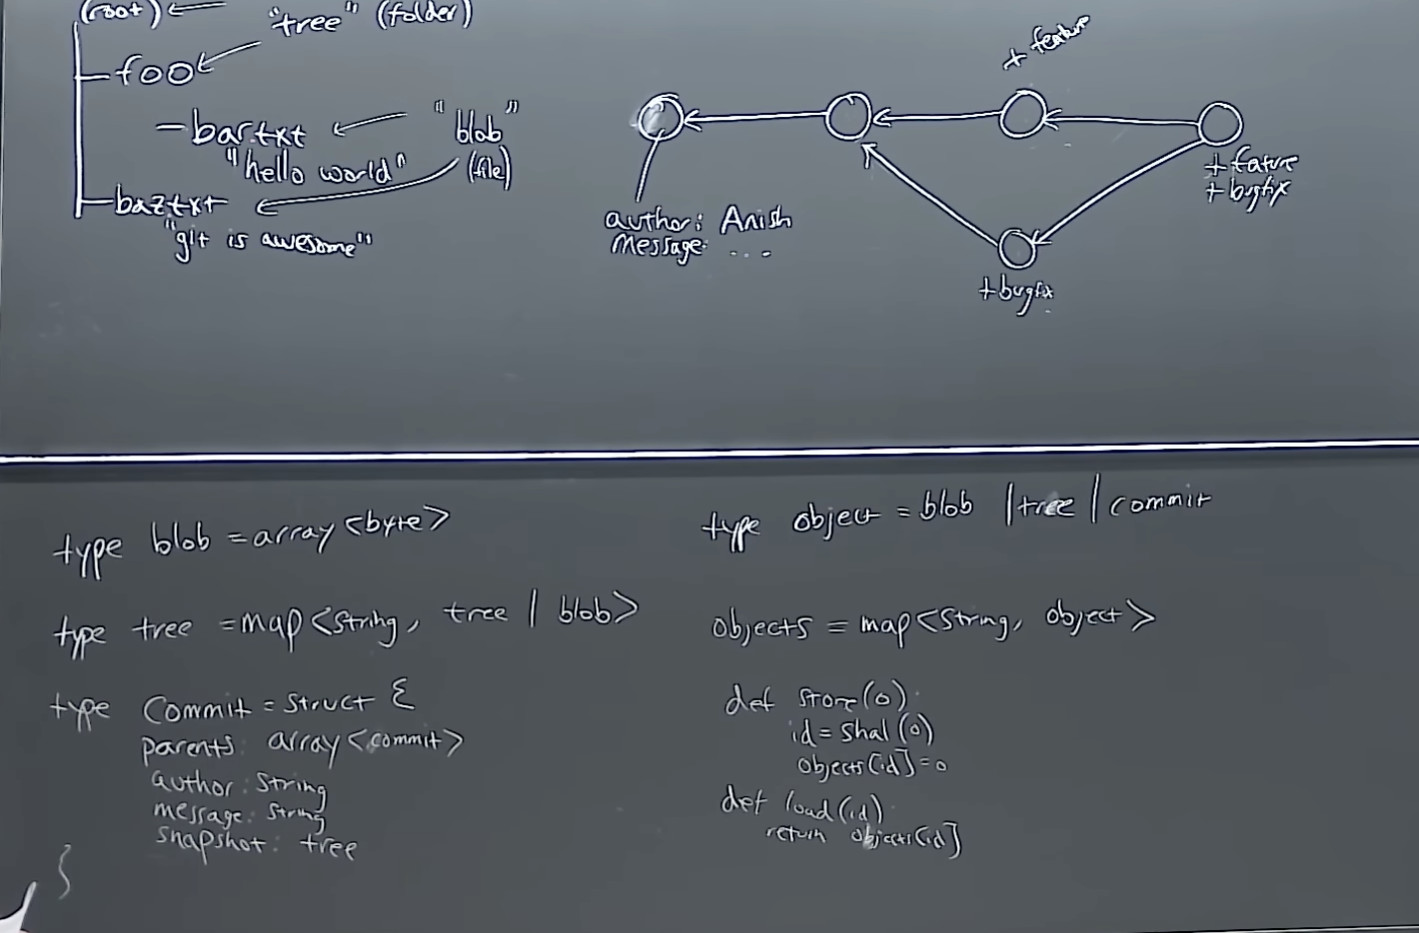 (root)
"tree" (folder)
foo
- bar.txt
"blob"
(file)
"hello world"
baz.txt
"git is awesome"
+ feature
author: Anish
message: ....
+ bugfix
+ feature
+ bugfix
type blob = array<byte>
type tree = map<string, tree | blob>
type commit = struct {
parents: array<commit>
author: string
message: string
snapshot: tree
}
type object = blob | tree | commit
objects = map<string, object>
def store(o):
id = sha1(o)
objects[id] = o
def load(id)
return objects[id]